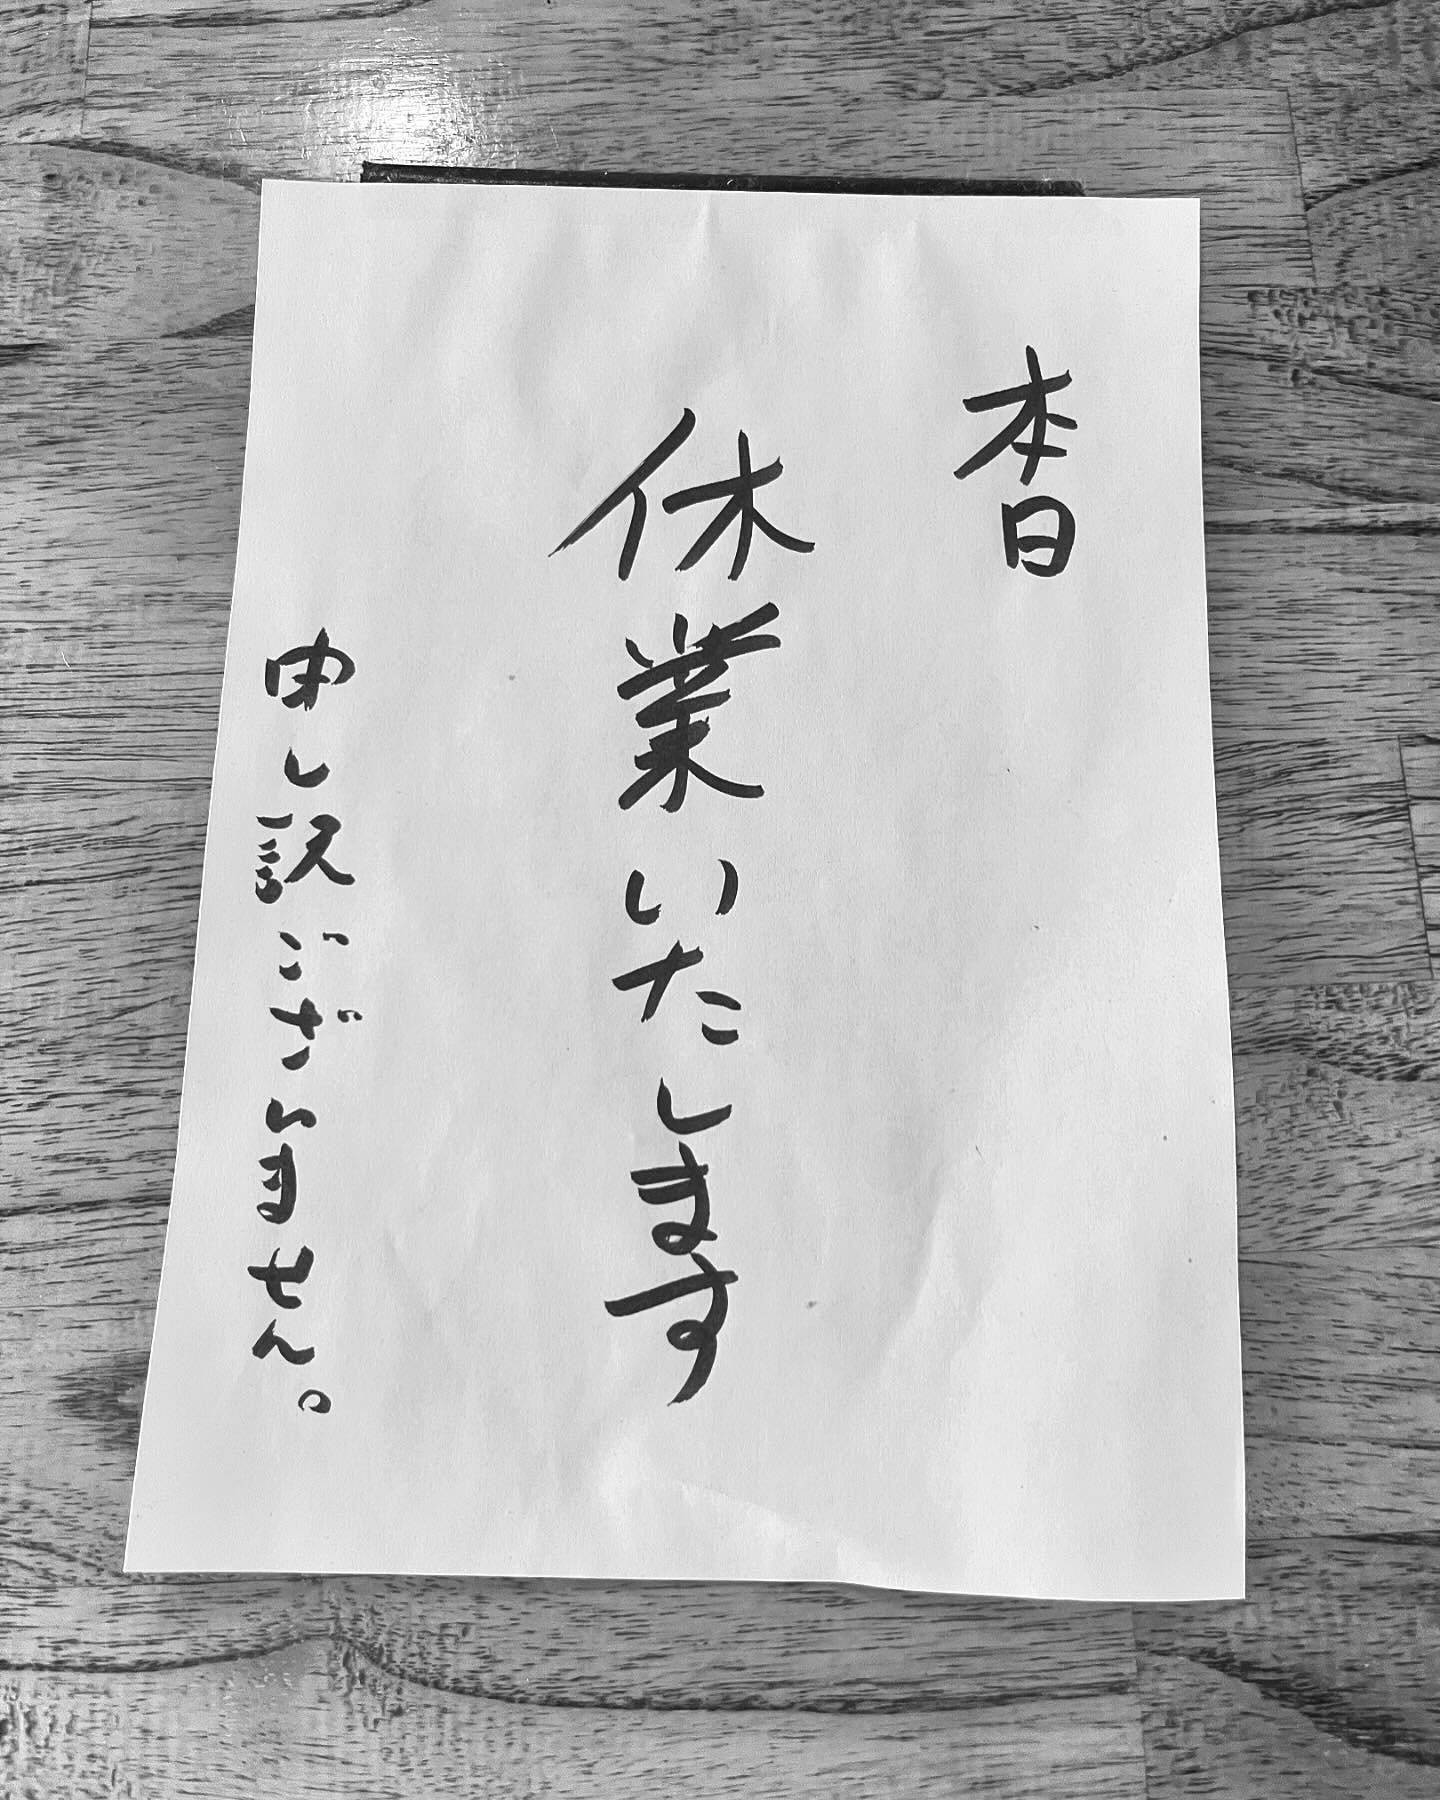 本日
休業いたします
申し訳ございません。